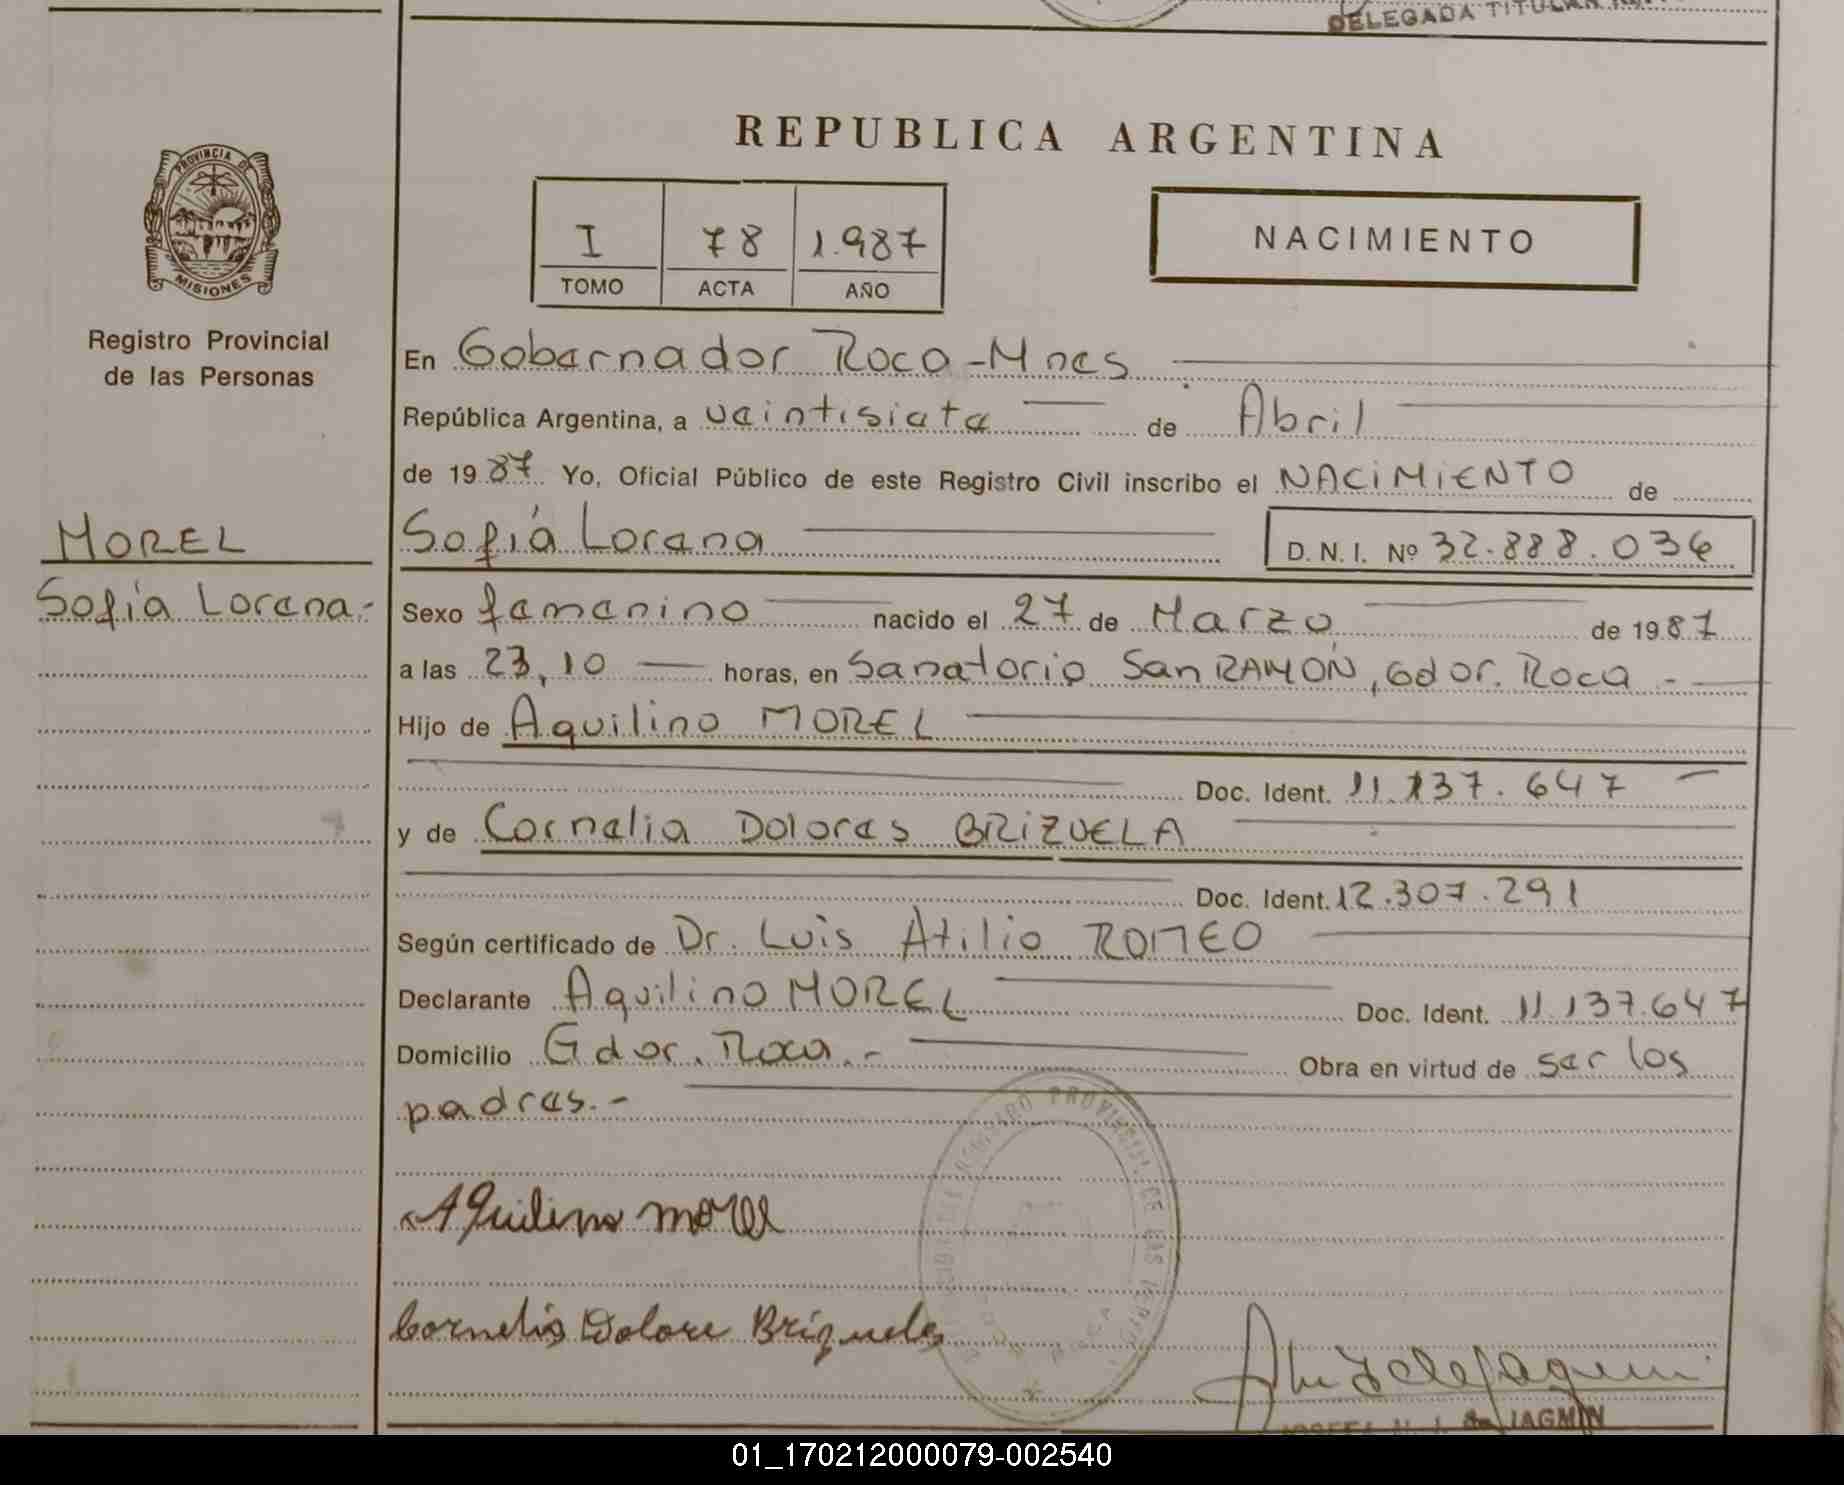 DELEGADA TITULAR
REPUBLICA ARGENTINA
PROVINCIA DE
MISIONES
Registro Provincial
de las Personas
I 78 1.987
TOMO ACTA AÑO
NACIMIENTO
En Gobernador Roca-Mnes
República Argentina, a veintisiete de Abril
de 1987 Yo, Oficial Público de este Registro Civil inscribo el NACIMIENTO de
MOREL
Sofía Lorena
D. N. I. Nº 32.888.036
Sofía Lorena.-
Sexo femenino nacido el 27 de Marzo de 1987
a las 23,10 horas, en Sanatorio San RAMÓN, Gdor. Roca.-
Hijo de Aquilino MOREL
Doc. Ident. 11.137.647
y de Cornelia Dolores BRIZUELA
Doc. Ident. 12.307.291
Según certificado de Dr. Luis Atilio ROMEO
Declarante Aquilino MOREL Doc. Ident. 11.137.647
Domicilio Gdor. Roca.- Obra en virtud de ser los
padres.-
Aquilino morel
Cornelia Dolore Brizuela
JAGMIN
01_170212000079-002540